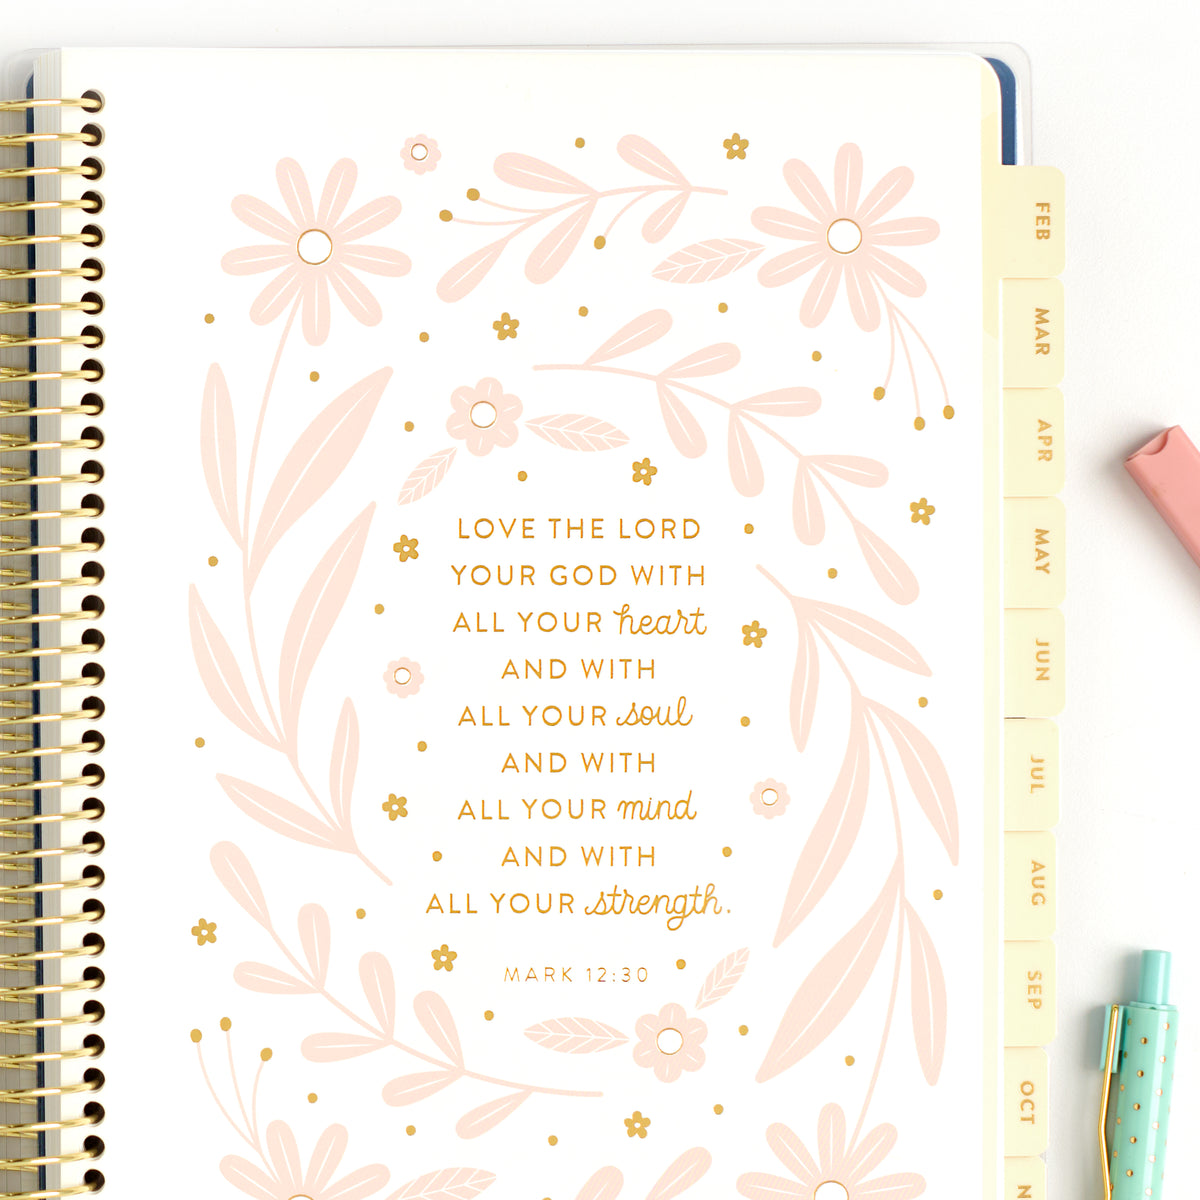 LOVE THE LORD
YOUR GOD WITH
ALL YOUR heart
AND WITH
ALL YOUR soul
AND WITH
ALL YOUR mind
AND WITH
ALL YOUR strength.
MARK 12:30
FEB
MAR
APR
MAY
JUN
JUL
AUG
SEP
OCT